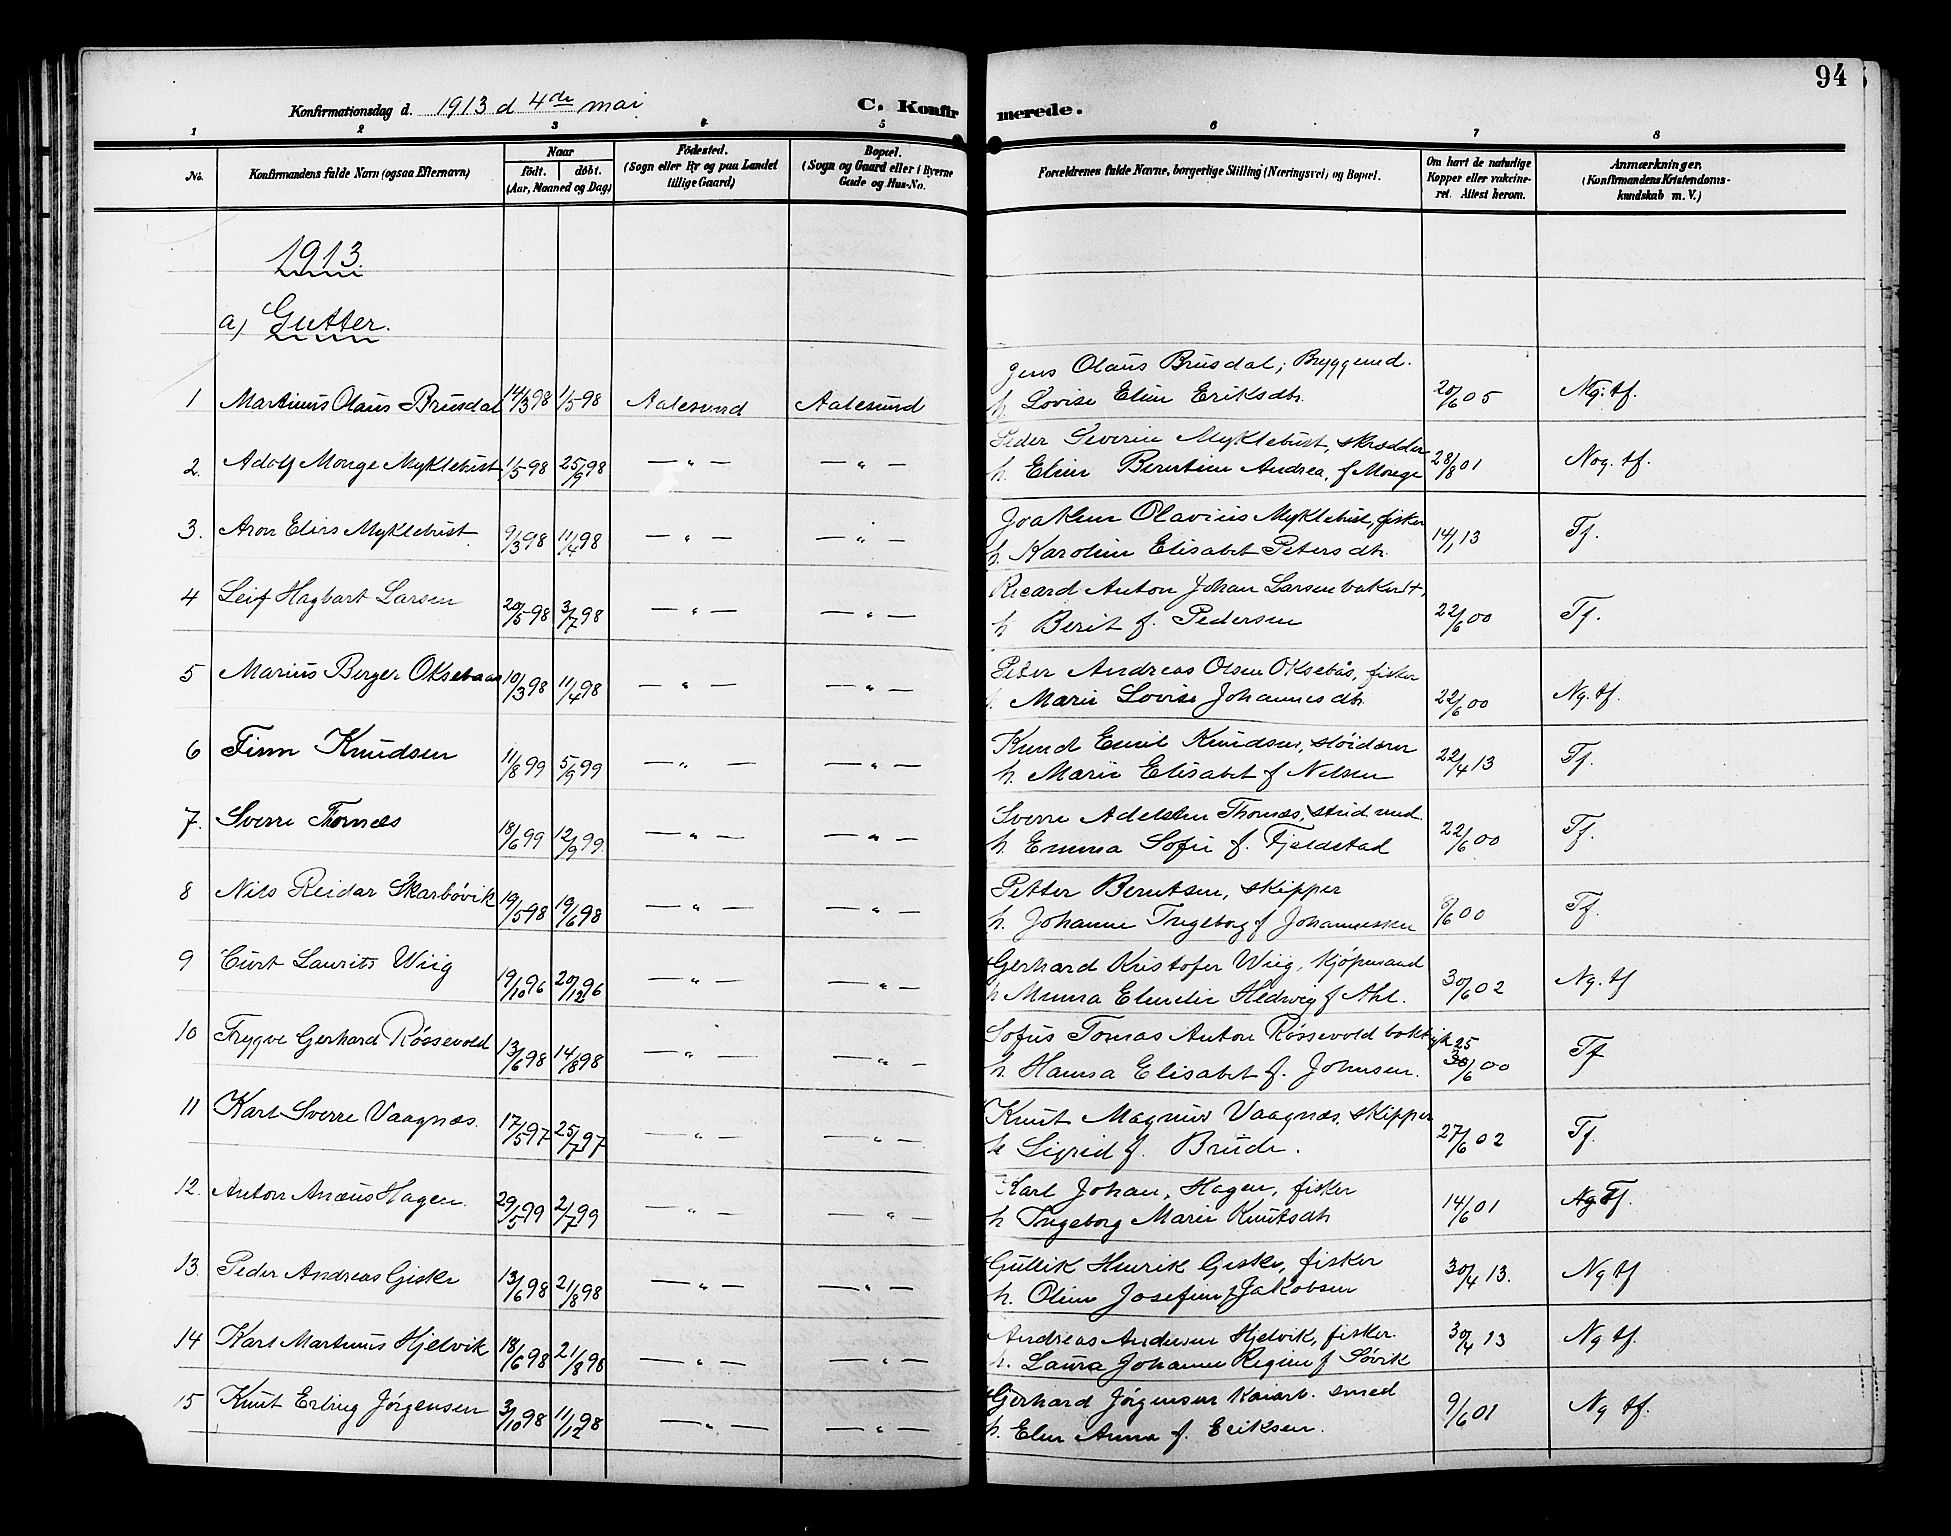 94
Konfirmationsdag d. 1913 d 4de mai C. Konfirmerede.
1 2 3 4 5 6 7 8
No. Konfirmandens fulde Navn (ogsaa Efternavn) Naar født. døbt. (Aar, Maaned og Dag) Fødested. (Sogn eller By og paa Landet tillige Gaard) Bopæl. (Sogn og Gaard eller i Byerne Gade og Hus-No. Forældrenes fulde Navne, borgerlige Stilling (Næringsvei) og Bopæl. Om havt de naturlige Kopper eller vaccineret. Attest herom. Anmærkninger. (Konfirmandens Kristendomskundskab m. V.)
1913.
a) Gutter.
Jens Olaus Brusdal, Bryggemd.
1 Martinus Olaus Brusdal 14/3 98 1/5 98 Aalesund Aalesund h. Lovise Eline Eriksdtr. 20/6 05 Ng. tf.
Peder Severin Myklebust, skrædder
2. Adolf Monge Myklebust 1/5 98 25/9 98 — " — — " — h. Eline Berntine Andrea, f Monge 28/8 01 Nog. tf.
Joakim Olavius Myklebust, fisker
3. Aron Elias Myklebust 9/3 98 11/4 98 — " — — " — h. Karoline Elisabet Petersdtr. 14/1 13 Tf.
Ricard Anton Johan Larsen baker
4 Leif Hagbart Larsen 20/5 98 3/7 98 — " — — " — h Berit f. Pedersen 22/6 00 Tf.
Peter Andreas Olsen Oksebås, fisker
5 Marius Berger Oksebaas 10/3 98 11/4 98 — " — — " — Marie Lovise Johannesdtr. 22/6 00 Ng. tf.
Knud Emil Knudsen, sloidarer
6 Finn Knudsen 11/8 99 5/9 99 — " — — " — h. Marie Elisabet f Nelsen 22/4 13 Tf.
Sverre Adelsten Thornæs,
7. Sverre Thornæs 18/6 99 12/9 99. — " — — " — h. Emma Sofie f. Fjeldstad 22/6 00 Tf.
Petter Berntsen, skipper
8 Nils Reidar Skarbövik 19/5 98 19/6 98 — " — — " — h. Johanne Ingeborg f Johannessen 8/6 00 Tf.
Gerhard Kristofer Wiig, kjøpmand
9 Curt Laurits Wiig 19/10 96 20/12 96 — " — — " — h Minna Elmelie Hedwig f Ahl. 30/6 02 Ng. tf
Sofus Tomas Anton Røssevold
10 Trygve Gerhard Røssevold 13/6 98 14/8 98 — " — — " — h. Hanna Elisabet f. Johnsen. 25/6 00 Tf
Knut Magnus Vaagnæs, skipper
11 Karl Sverre Vaagnæs. 17/5 97 25/7 97 — " — — " — h Sigrid f. Brude. 27/6 02 Tf.
Karl Johan, Hagen, fisker
12. Anton Anæus Hagen. 29/5 99 2/7 99 — " — — " — h Ingeborg Marie Knutsdtr 14/6 01 Tf.
Gullik Henrik Giske, fisker
13. Peder Andreas Giske 13/6 98 21/8 98 — " — — " — h. Oline Josefine f Jakobsen 30/4 13. Ng. tf
Andreas Andersen Hjelvik, fisker
14 Karl Martinus Hjelvik 18/6 98 21/8 98 — " — — " — h. Laura Johanne Regine f Søvik 30/4 13 Ng tf.
Gerhard Jørgensen Kaiarb. smed
15 Knut Erling Jørgensen 3/10 98 11/12 98 — " — — " — h. Elen Anna f. Eriksen. 9/6 01 Ng tf.